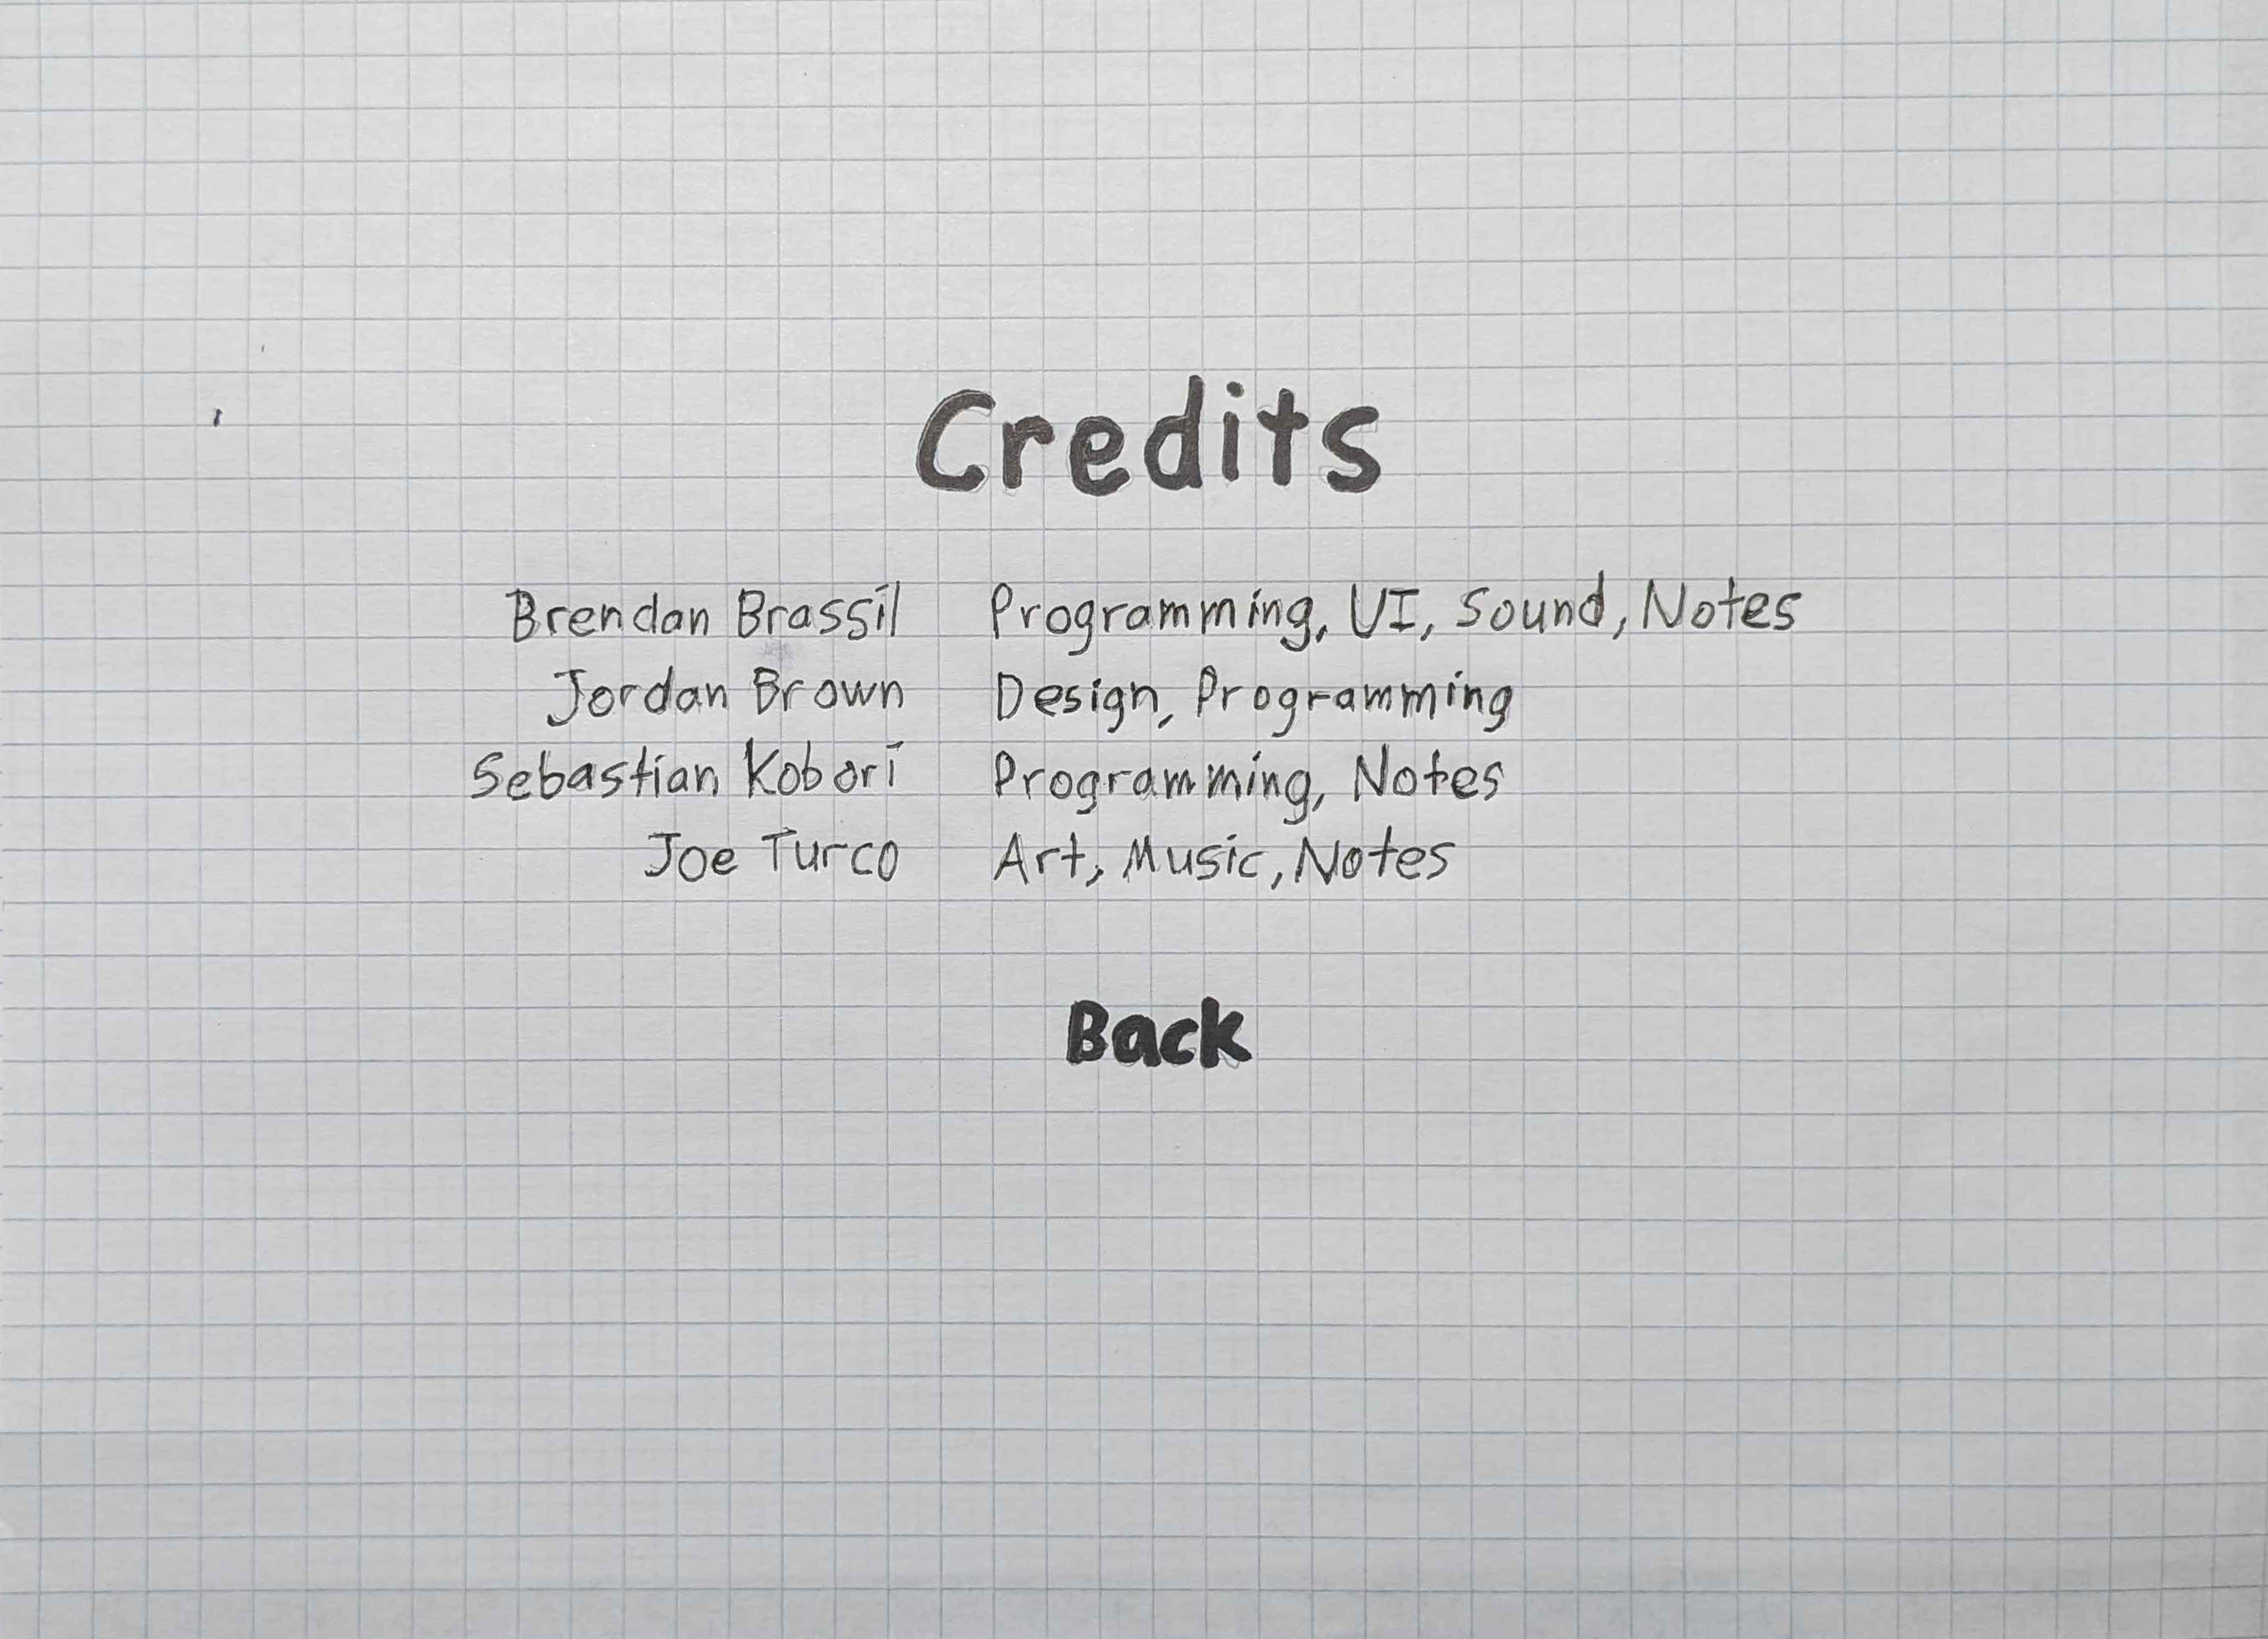 Credits
Brendan Brassil Programming, UI, Sound, Notes
Jordan Brown Design, Programming
Sebastian Kobori Programming, Notes
Joe Turco Art, Music, Notes
Back